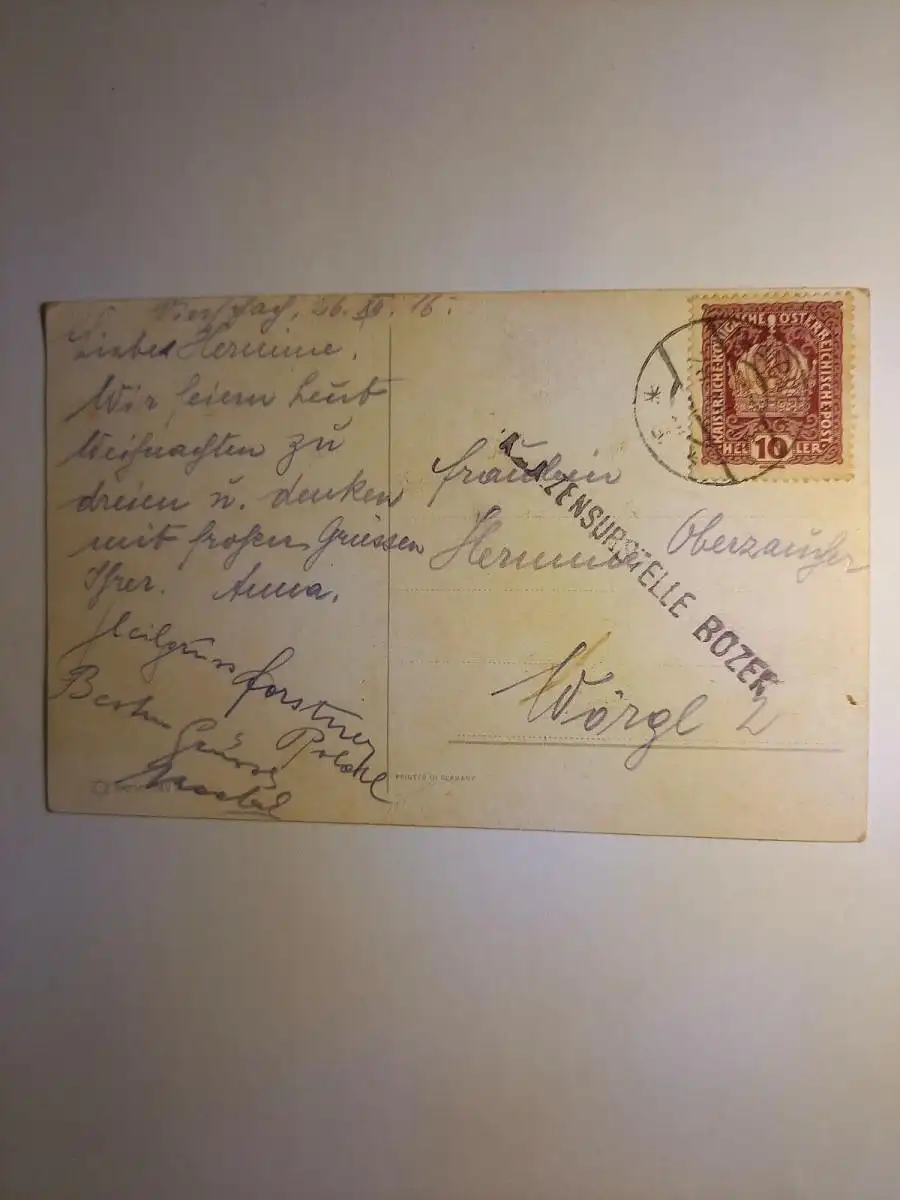 Vierschach, 26. XII. 16.
Liebes Hermine.
Wir feiern heut
Weihnachten zu
dreien u. denken
mit frohen Grüssen
Ihrer. Anna.
Heilgruss
Besten
Grüsse
KAISERLICHE KÖNIGLICHE ÖSTERREICHISCHE POST
HELLER
10
ZENSURSTELLE BOZEN
Fräulein
Hermine Oberzaucher
Wörgl 2
PRINTED IN GERMANY